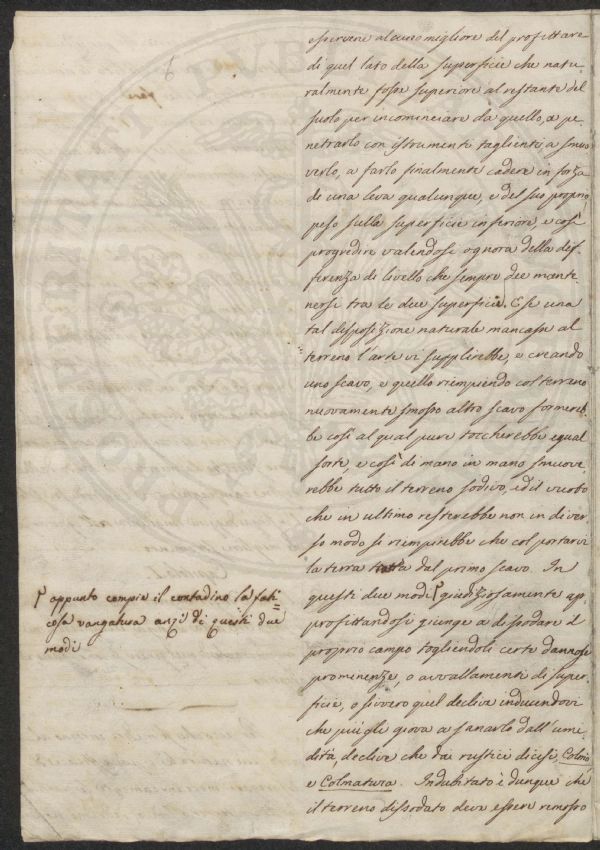 esservene alcuno migliore del profittare
di quel lato della superficie che natu-
ralmente fosse superiore al restante del
suolo per incominciare da quello, a pe-
netrarlo con istrumenti taglienti, a smuo
verlo, a farlo finalmente cadere in forza
di una leva qualunque, e del suo proprio
peso sulla superficie inferiore, e così
progredire valendosi ognora della dif-
ferenza di livello che sempre dee mante-
nersi tra le due superficie. E se una
tal disposizione naturale mancasse al
terreno l'arte vi supplirebbe, e creando
uno scavo, e quello riempiendo col terreno
nuovamente smosso altro scavo formereb
be così al qual pure toccherebbe egual
sorte, e così di mano in mano smuove-
rebbe tutto il terreno sodivo, ed il vuoto
che in ultimo resterebbe non in diver
so modo si riempirebbe che col portarvi
la terra tratta dal primo scavo. In
questi due modi giudiziosamente ap-
profittandosi giunge a dissodare il
proprio campo togliendoli certe dannose
prominenze, o avvallamenti di super-
ficie, o sivvero quel declive inducendovi
che più gli giova a sanarlo dall'umi
dità, declive che dai rustici dicesi, Colmo
e Colmatura. Indubitato è dunque che
il terreno dissodato deve essere remosso
appunto compie il contadino la fati=
cosa vangatura anzi di questi due
modi